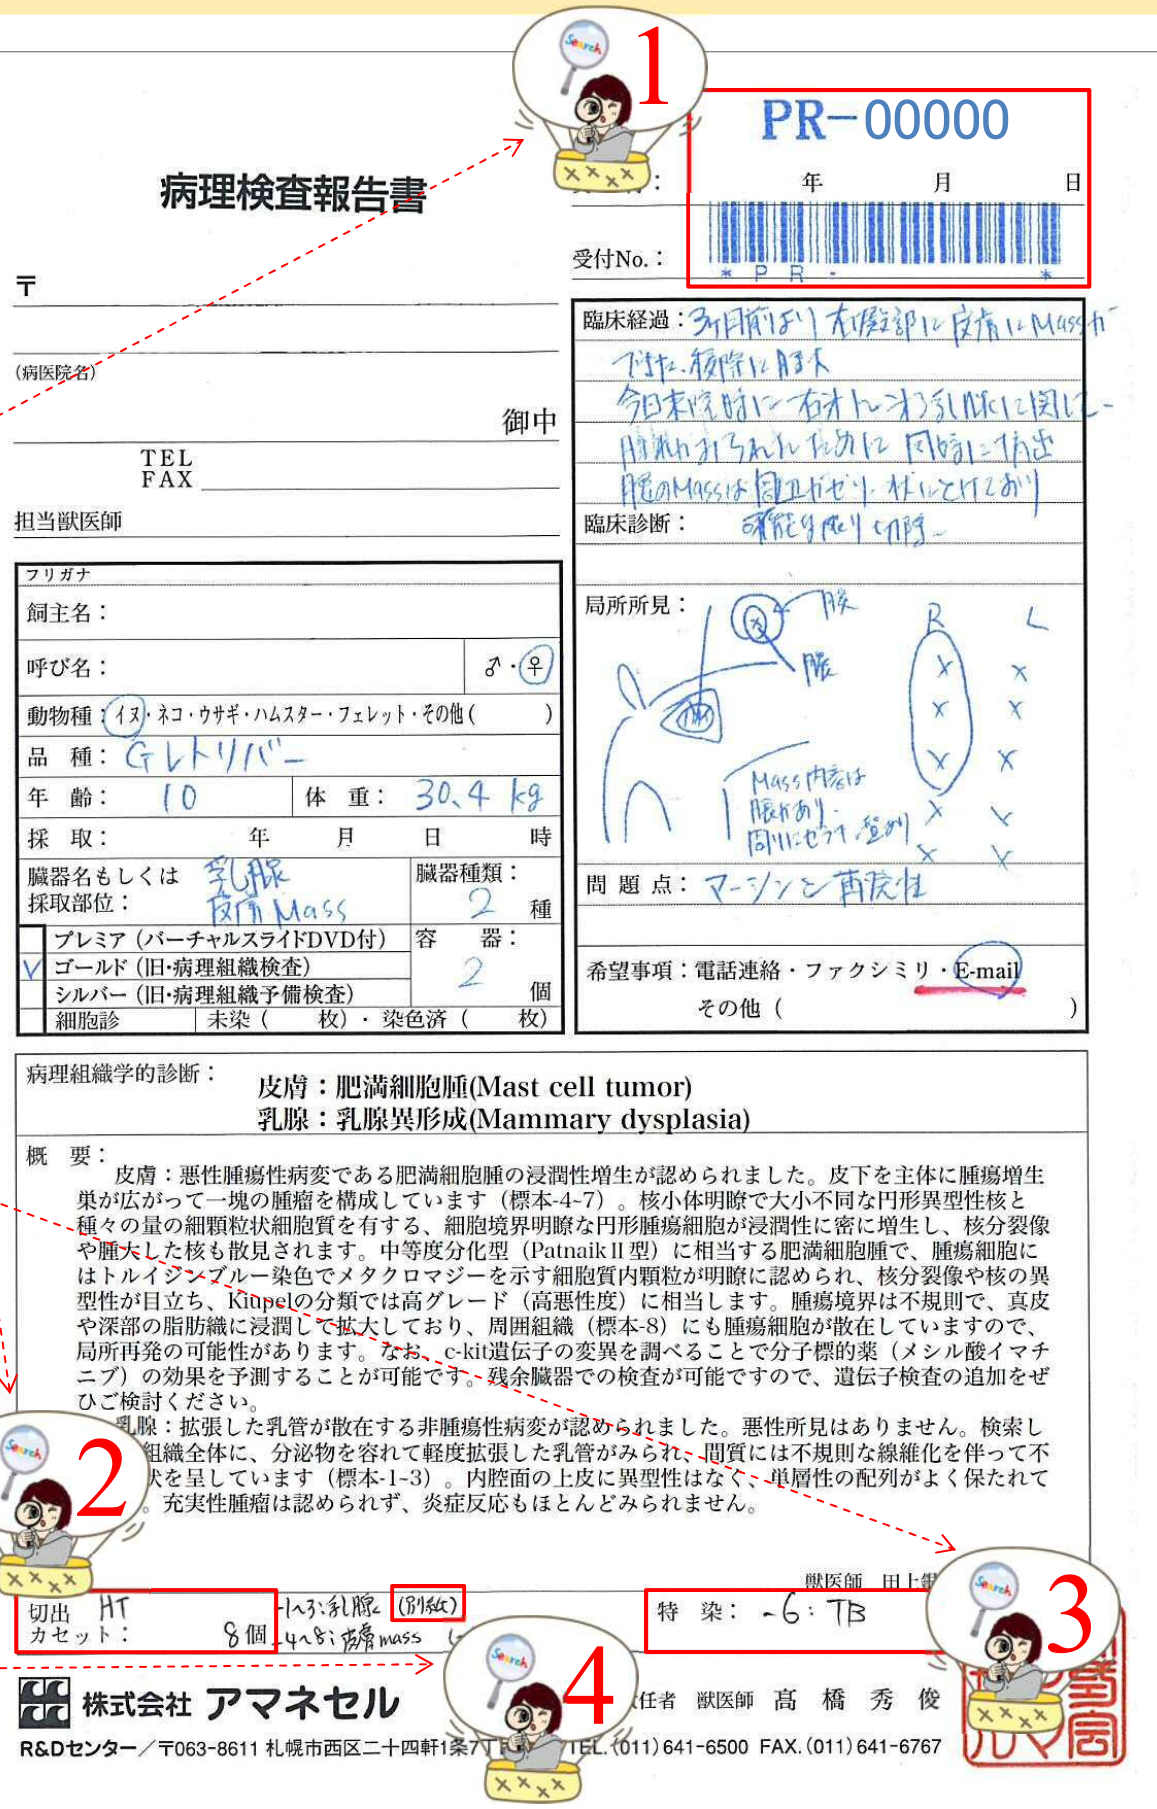 Search
1
PR-00000
病理検査報告書
年 月 日
受付No.：
* P R - *
〒
(病医院名)
御中
TEL
FAX
担当獣医師
臨床経過：3ヶ月前より 右臀部に皮膚にMassが
できた.
今日来院時に
同時に摘出
臨床診断：
可能な限り切除
フリガナ
飼主名：
呼び名：
♂・♀
動物種：イヌ・ネコ・ウサギ・ハムスター・フェレット・その他( )
品 種：Gレトリバー
年 齢：10
体 重：30.4 kg
採 取： 年 月 日 時
臓器名もしくは 乳腺
採取部位： 皮膚Mass
臓器種類：
2 種
プレミア（バーチャルスライドDVD付）
V ゴールド（旧・病理組織検査）
シルバー（旧・病理組織予備検査）
細胞診 未染（ 枚）・染色済（ 枚）
容 器：
2 個
局所所見：
R L
Mass内容は
問 題 点：マージンと再発性
希望事項：電話連絡・ファクシミリ・E-mail
その他（ ）
病理組織学的診断：
皮膚：肥満細胞腫(Mast cell tumor)
乳腺：乳腺異形成(Mammary dysplasia)
概 要：
皮膚：悪性腫瘍性病変である肥満細胞腫の浸潤性増生が認められました。皮下を主体に腫瘍増生
巣が広がって一塊の腫瘤を構成しています（標本-4~7）。核小体明瞭で大小不同な円形異型性核と
種々の量の細顆粒状細胞質を有する、細胞境界明瞭な円形腫瘍細胞が浸潤性に密に増生し、核分裂像
や腫大した核も散見されます。中等度分化型（PatnaikⅡ型）に相当する肥満細胞腫で、腫瘍細胞に
はトルイジンブルー染色でメタクロマジーを示す細胞質内顆粒が明瞭に認められ、核分裂像や核の異
型性が目立ち、Kiupelの分類では高グレード（高悪性度）に相当します。腫瘍境界は不規則で、真皮
や深部の脂肪織に浸潤して拡大しており、周囲組織（標本-8）にも腫瘍細胞が散在していますので、
局所再発の可能性があります。なお、c-kit遺伝子の変異を調べることで分子標的薬（メシル酸イマチ
ニブ）の効果を予測することが可能です。残余臓器での検査が可能ですので、遺伝子検査の追加をぜ
ひご検討ください。
乳腺：拡張した乳管が散在する非腫瘍性病変が認められました。悪性所見はありません。検索し
組織全体に、分泌物を容れて軽度拡張した乳管がみられ、間質には不規則な線維化を伴って不
状を呈しています（標本-1~3）。内腔面の上皮に異型性はなく、単層性の配列がよく保たれて
。充実性腫瘤は認められず、炎症反応もほとんどみられません。
Search
2
獣医師 田上
切出 HT
カセット： 8個
-1~3：乳腺 (別紙)
-4~8：皮膚mass
特 染： -6：TB
Search
3
Search
4
株式会社 アマネセル
任者 獣医師 高 橋 秀 俊
R&Dセンター／〒063-8611 札幌市西区二十四軒1条7丁 TEL.(011)641-6500 FAX.(011)641-6767